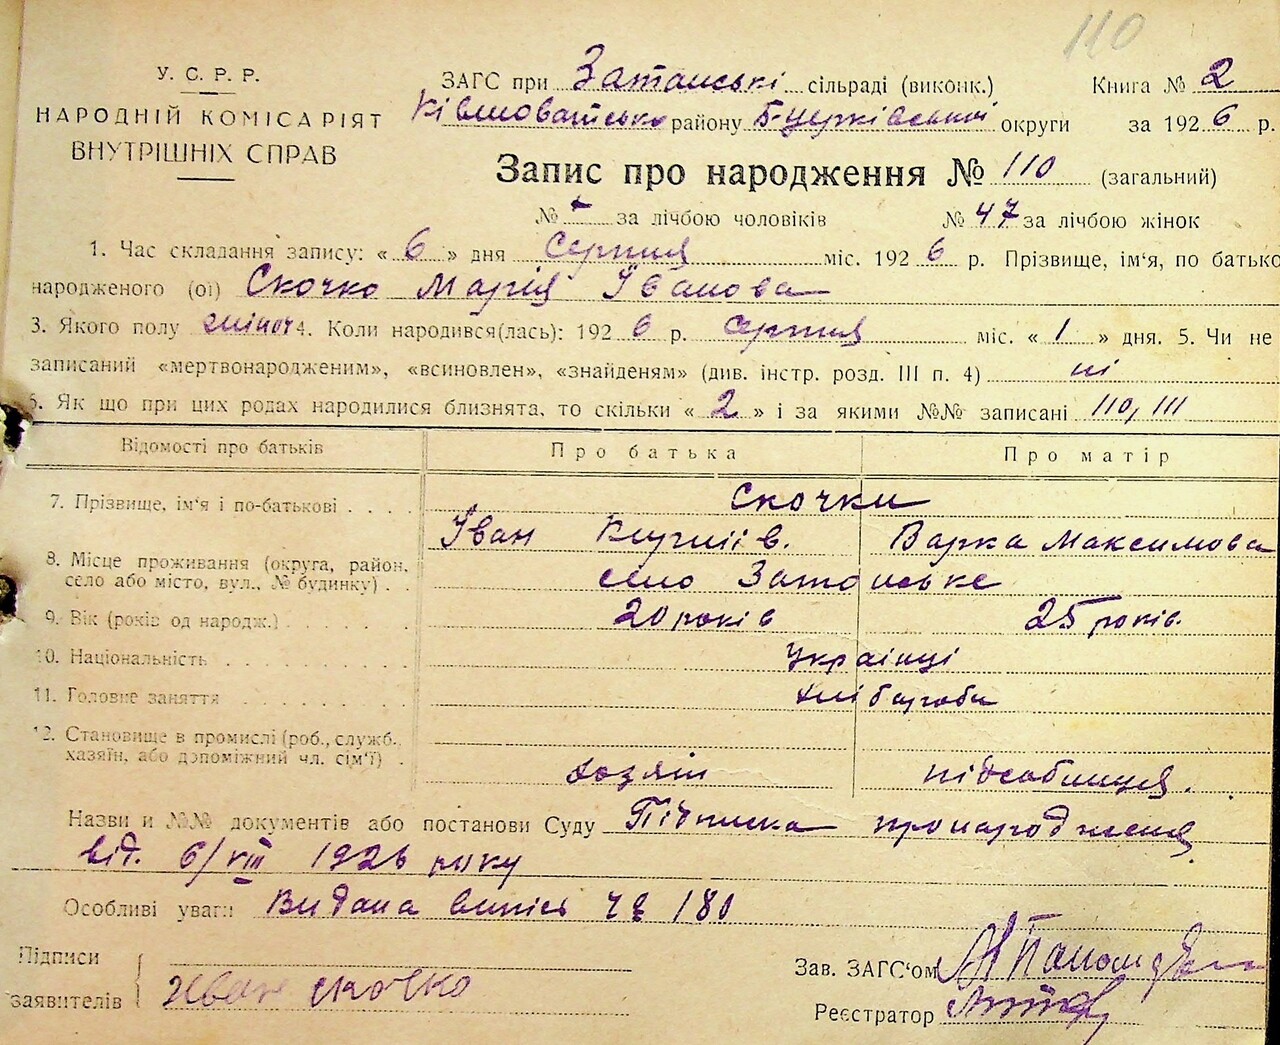 110
У. С. Р. Р.
НАРОДНІЙ КОМІСАРІЯТ
ВНУТРІШНІХ СПРАВ
ЗАГС при Затонські сільраді (виконк.) Книга № 2
району Б-Церківській округи за 1926 р.
Запис про народження № 110 (загальний)
№ за лічбою чоловіків № 47 за лічбою жінок
1. Час складання запису: « 6 » дня Серпня міс. 1926 р. Прізвище, ім'я, по батько
народженого (ої) Скочко Марія Іванова
3. Якого полу жіноч 4. Коли народився(лась): 1926 р. серпня міс. « 1 » дня. 5. Чи не
записаний «мертвонародженим», «всиновлен», «знайденям» (див. інстр. розд. III п. 4) ні
6. Як що при цих родах народилися близнята, то скільки « 2 » і за якими №№ записані 110, 111
Відомості про батьків Про батька Про матір
7. Прізвище, ім'я і по-батькові Скочки
Іван Варка Максимова
8. Місце проживання (округа, район,
село або місто, вул., № будинку) село Затонське
9. Вік (років од народж.) 20 років 25 років
10. Національність Українці
11. Головне заняття хлібороби
12. Становище в промислі (роб., служб.,
хазяїн, або допоміжний чл. сім'ї) хозяїн підсобниця.
Назви и №№ документів або постанови Суду Підписка про народження
від. 6/VIII 1926 року
Особливі уваги Видана випись ч 180
Підписи
заявителів Иван скочко
Зав. ЗАГС'ом
Реєстратор